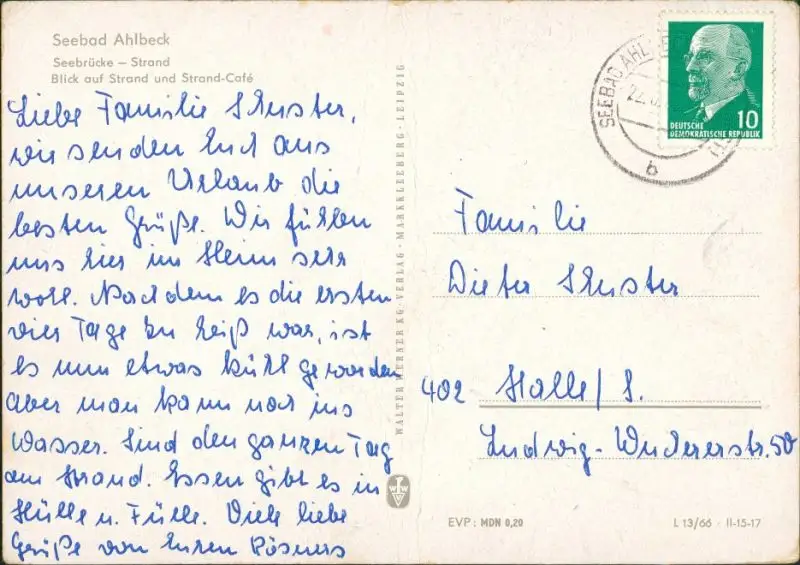 Seebad Ahlbeck
Seebrücke – Strand
Blick auf Strand und Strand-Café
Liebe Familie Schuster,
wir senden Euch aus
unseren Urlaub die
besten Grüße. Wir fühlen
uns hier im Heim sehr
wohl. Nachdem es die ersten
vier Tage zu heiß war, ist
es nun etwas kühl geworden
aber man kann noch ins
Wasser. Sind den ganzen Tag
am Strand. Essen gibt es in
Hülle u. Fülle. Viele liebe
Grüße von Euren Rösners
WALTER WERNER KG · VERLAG · MARKKLEEBERG · LEIPZIG
WWV
SEEBAD AHL
22.
b
DEUTSCHE
DEMOKRATISCHE REPUBLIK
10
Familie
Dieter Schuster
402 Halle/S.
Ludwig-Wuchererstr. 50
EVP: MDN 0,20
L 13/66 · II-15-17